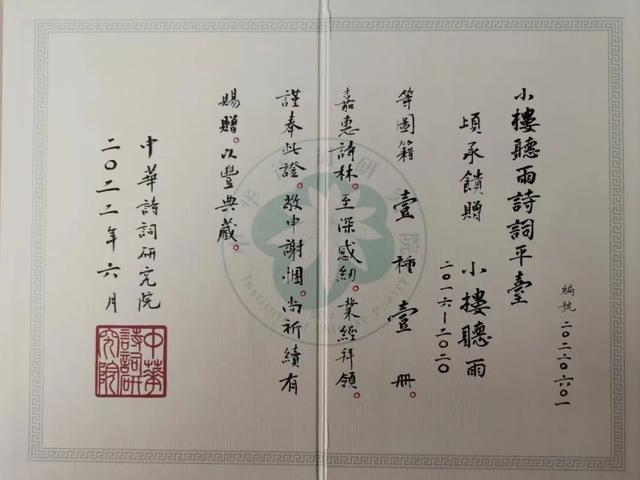 編號 二〇二二〇六〇一
小樓聽雨詩詞平臺
頃承饋贈 小樓聽雨
二〇一六—二〇二〇
等圖籍壹種壹冊。
嘉惠詩林。至深感紉。業經拜領。
謹奉此證。敬申謝悃。尚祈續有
賜贈。以豐典藏。
中華詩詞研究院
二〇二二年六月
中華詩詞研究院